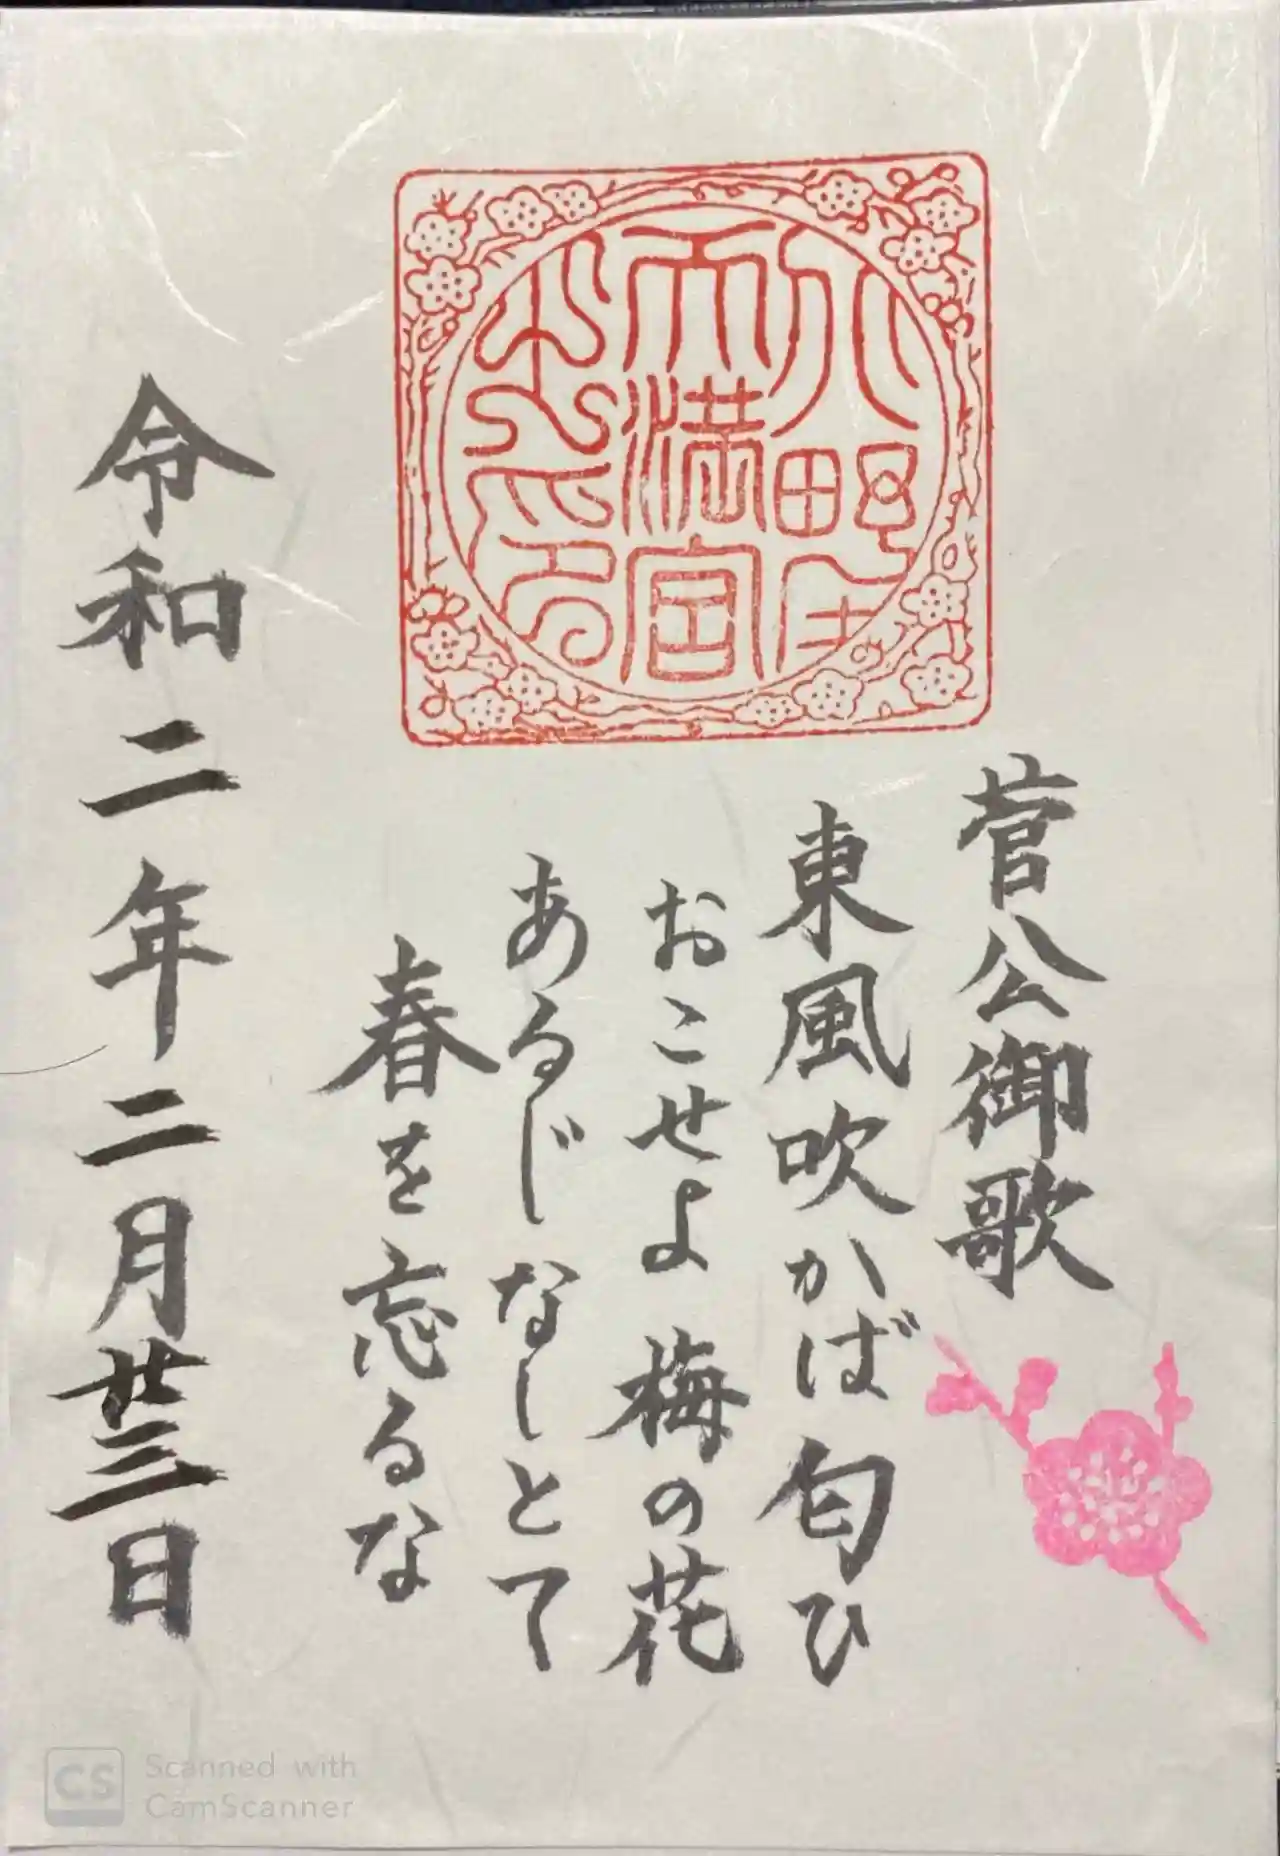 菅公御歌
東風吹かば匂ひ
おこせよ梅の花
あるじなしとて
春を忘るな
令和二年二月廿三日
天満宮
CS
Scanned with
CamScanner